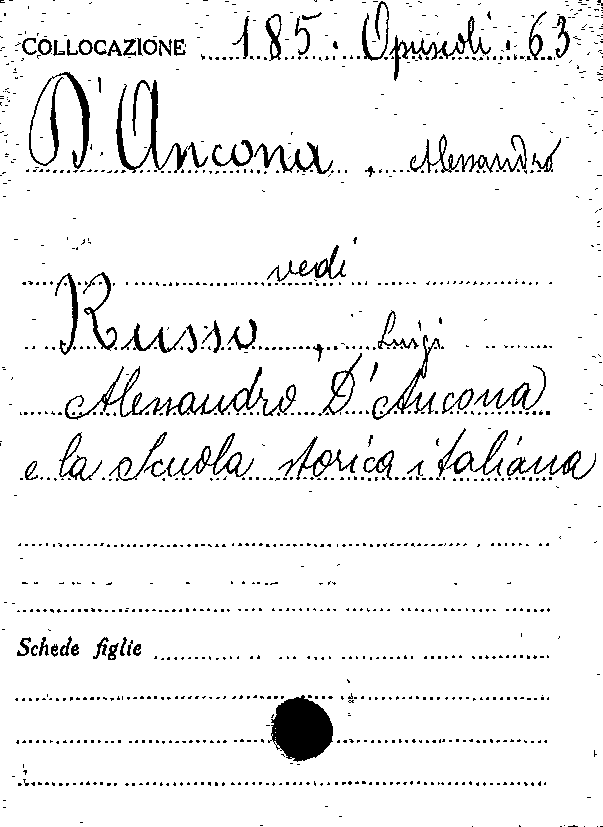 COLLOCAZIONE 185. Opuscoli. 63
D'Ancona, Alessandro
vedi
Russo, Luigi
Alessandro D'Ancona
e la Scuola storica italiana
Schede figlie